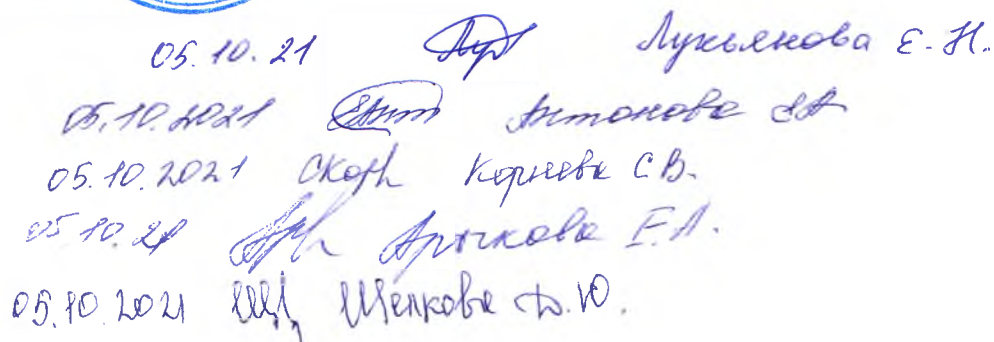 05.10.21 Лукьянова Е.Н.
05.10.2021 Антонова ЕА
05.10.2021 СКорн Корнева С.В.
05.10.21 Е.А.
05.10.2021 Щелкова Д.Ю.